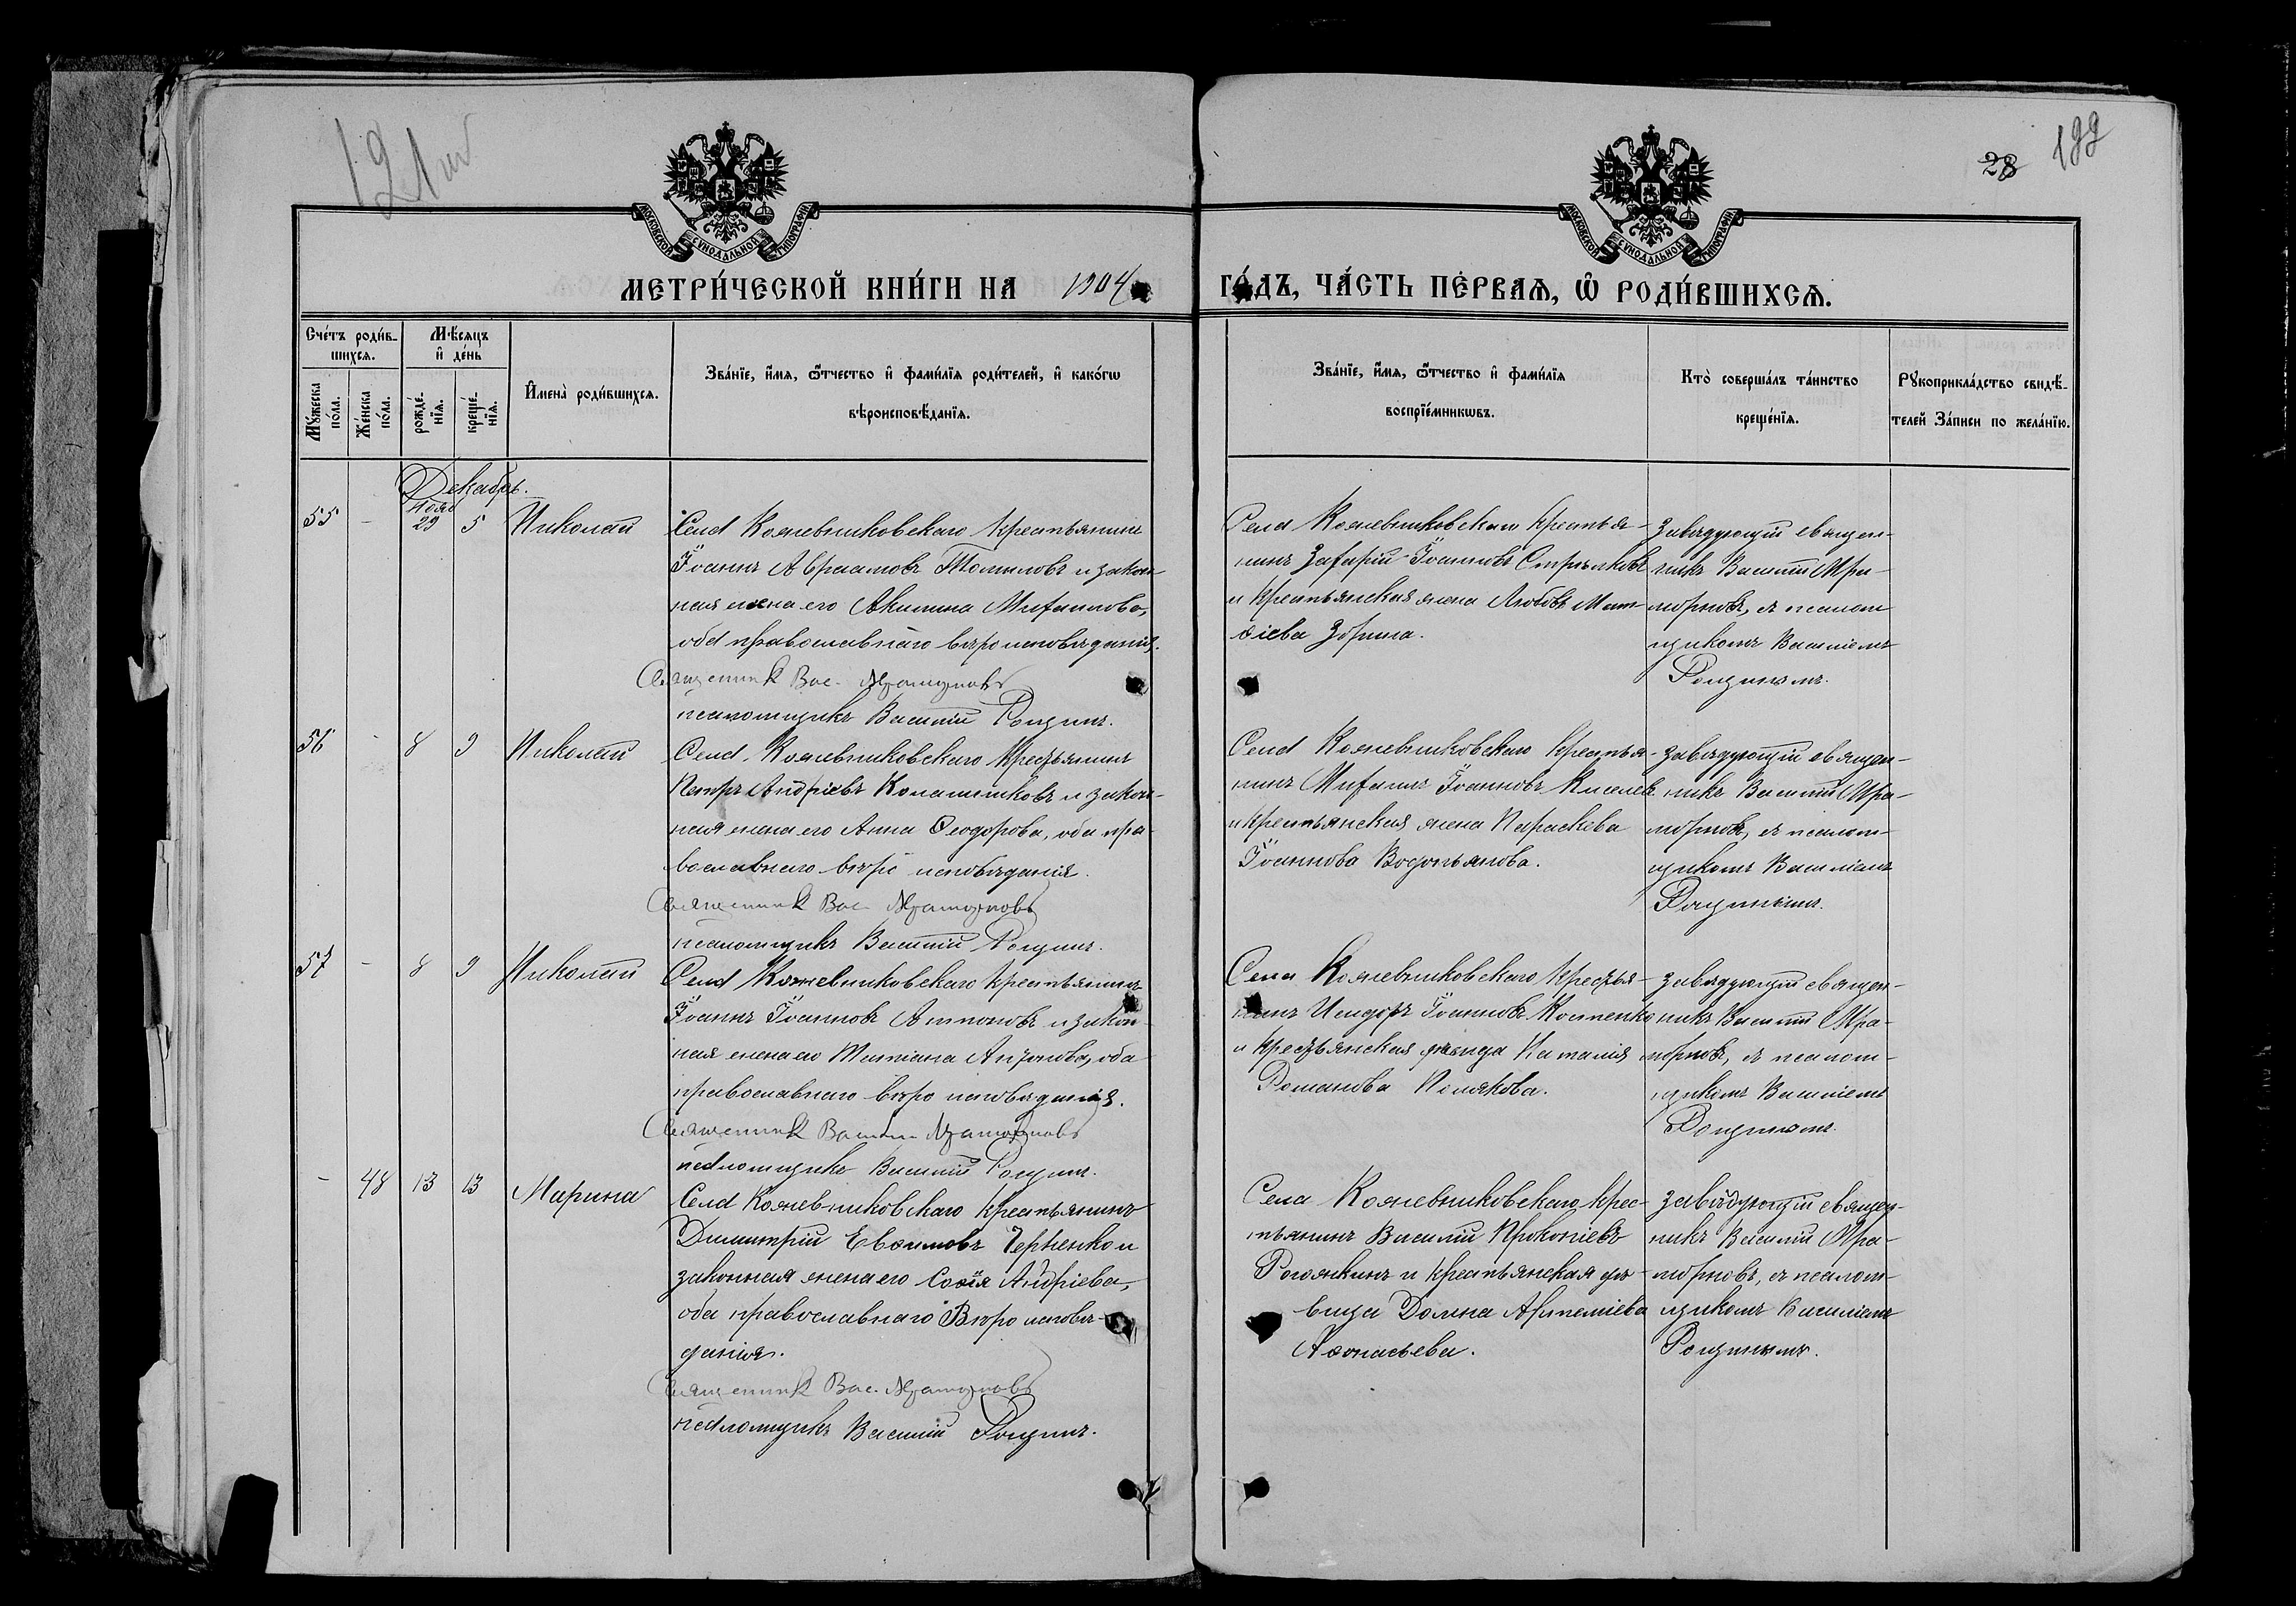 121
28
199
МОСКОВСКОЙ СѴНОДАЛЬНОЙ ТИПОГРАФІИ
МОСКОВСКОЙ СѴНОДАЛЬНОЙ ТИПОГРАФІИ
МЕТРИ́ЧЕСКОЙ КНИ́ГИ НА 1904 ГО́ДЪ, ЧА́СТЬ ПЕ́РВАЯ, Ѡ҆ РОДИ́ВШИХСЯ.
Сче́тъ роди́в-
шихся.
Мѣ́сяцъ
и҆ де́нь
Мꙋ́жеска
по́ла.
Же́нска
по́ла.
рожде́-
нїя.
креще́-
нїя.
И҆мена̀ роди́вшихся.
Зва́нїе, и҆́мя, ѻ҆́тчество и҆ фами́лїя роди́телей, и҆ како́гѡ
вѣроисповѣ́данїя.
Зва́нїе, и҆́мя, ѻ҆́тчество и҆ фами́лїя
воспрїе́мникѡвъ.
Кто̀ соверша́лъ та́инство
креще́нїя.
Рꙋкоприкла́дство свидѣ́-
телей За́писи по жела́нїю.
Декабрь.
Нояб
55 - 29 5 Николай
Села Кожевниковскаго крестьянинъ
Іоаннъ Авраамовъ Томиловъ и закон-
ная жена его Акилина Михаилова,
оба православнаго вѣроисповѣданія.
Священникъ Вас. Мраморновъ
псаломщикъ Василій Рощинъ.
Села Кожевниковскаго крестья-
нинъ Захарій Іоанновъ Стрѣлковъ
и крестьянская жена Любовь Мат-
ѳіева Зорина.
Завѣдующій священ-
никъ Василій Мра-
морновъ, съ псалом-
щикомъ Василіемъ
Рощинымъ.
56 - 8 9 Николай
Села Кожевниковскаго крестьянинъ
Петръ Андріевъ Калашниковъ и закон-
ная жена его Анна Ѳеодорова, оба пра-
вославнаго вѣроисповѣданія.
Священникъ Вас. Мраморновъ
псаломщикъ Василій Рощинъ.
Села Кожевниковскаго крестья-
нинъ Михаилъ Іоанновъ Киселев
и крестьянская жена Параскева
Іоаннова Водопьянова.
Завѣдующій священ-
никъ Василій Мра-
морновъ, съ псалом-
щикомъ Василіемъ
Рощинымъ.
57 - 8 9 Николай
Села Кожевниковскаго крестьянинъ
Іоаннъ Іоанновъ Антоновъ и закон-
ная жена его Татіана Антонова, оба
православнаго вѣроисповѣданія.
Священникъ Василій Мраморновъ
псаломщикъ Василій Рощинъ.
Села Кожевниковскаго крестья-
нинъ Исидоръ Іоанновъ Костенко
и крестьянская дѣвица Наталія
Романова Полякова.
Завѣдующій священ-
никъ Василій Мра-
морновъ, съ псалом-
щикомъ Василіемъ
Рощинымъ.
- 48 13 13 Марина
Села Кожевниковскаго крестьянинъ
Димитрій Евѳимовъ Черненко и
законная жена его Софія Андріева,
оба православнаго вѣроисповѣ-
данія.
Священникъ Вас. Мраморновъ
псаломщикъ Василій Рощинъ.
Села Кожевниковскаго крес-
тьянинъ Василій Прокопіевъ
Рогожкинъ и крестьянская дѣ-
вица Домна Артеміева
Аѳонасьева.
Завѣдующій священ-
никъ Василій Мра-
морновъ, съ псалом-
щикомъ Василіемъ
Рощинымъ.